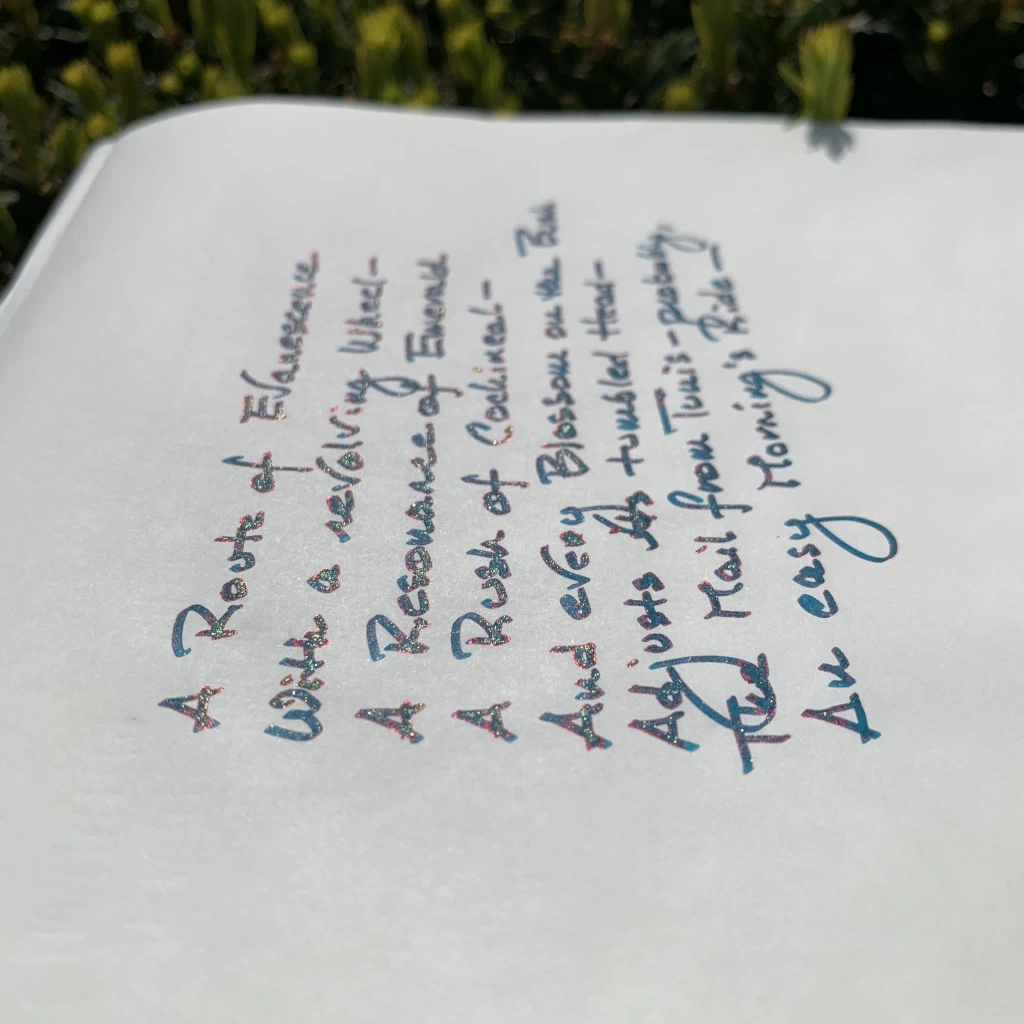 A Route of Evanescence
With a revolving Wheel-
A Resonance of Emerald
A Rush of Cochineal-
And every Blossom on the Bush
Adjusts its tumbled Head-
The Mail from Tunis-probably,
An easy Morning's Ride-